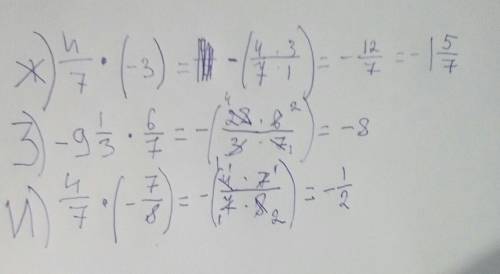 Ж) 4/7 · (-3) = -(4 · 3 / 7 · 1) = -12/7 = -1 5/7
З) -9 1/3 · 6/7 = -(28 · 8 / 3 · 7) = -8
И) 4/7 · (-7/8) = -(4 · 7 / 7 · 8) = -1/2